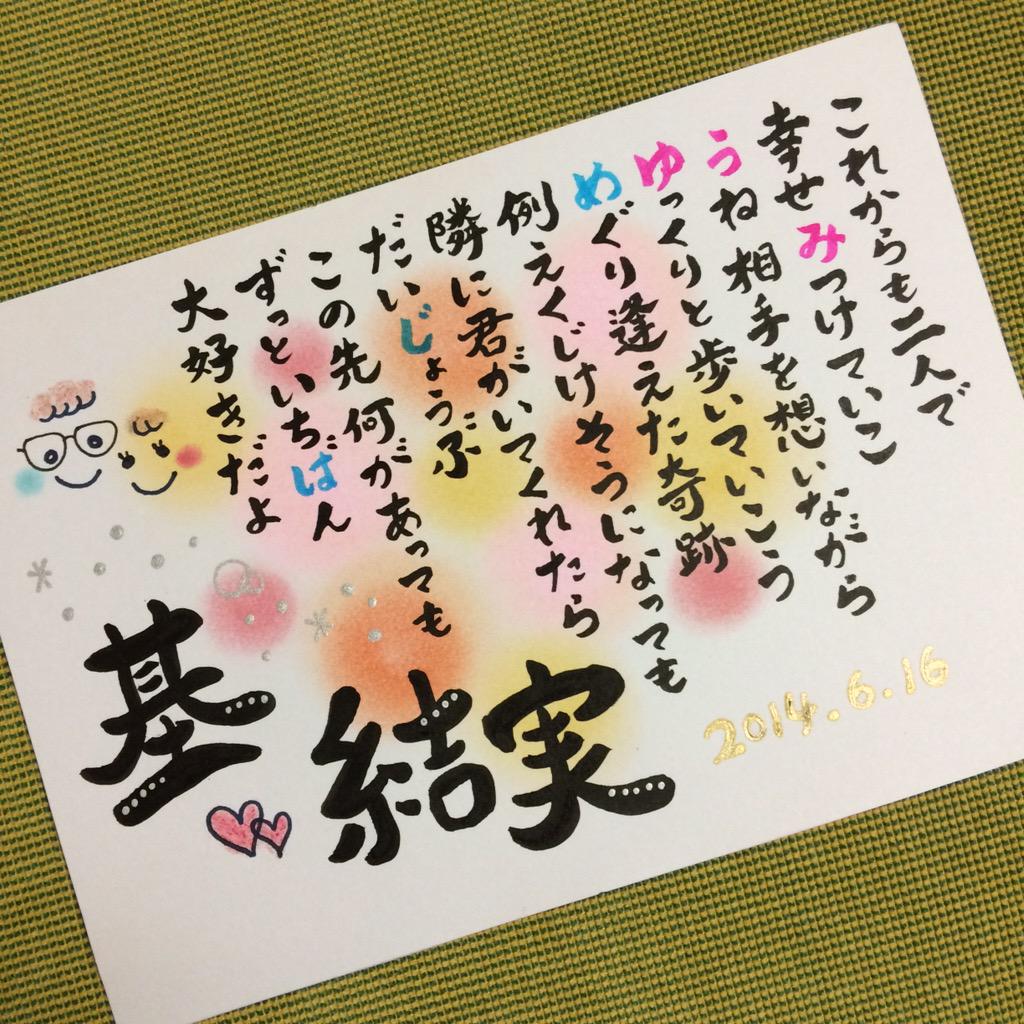 これからも二人で
幸せみつけていこ
うね相手を想いながら
ゆっくりと歩いていこう
めぐり逢えた奇跡
例えくじけそうになっても
隣に君がいてくれたら
だいじょうぶ
この先何があっても
ずっといちばん
大好きだよ
基 結実
2014.6.16